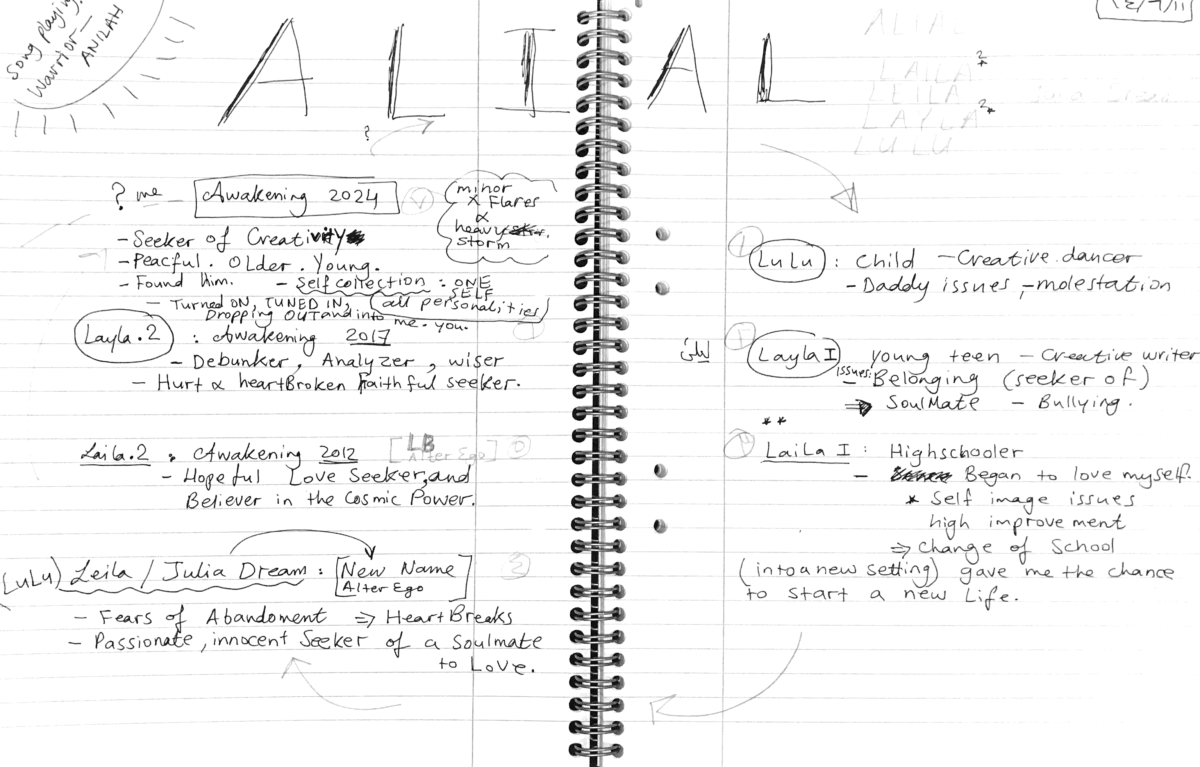 Song playing:
Warrior
ANILAH
A L I A L
?
? me Awakening 2024
minor
x Flares
&
heavy
storm
- Seeker of Creativity
- Peacful. Older. Young.
- Found him - Self collection : ONE SELF
- Turned ON, TUNED IN (all personalities)
Dropping OUT and into me - you.
Layla.2 : Awakening 2017
- Debunker, Analyzer, wiser
- Hurt & HeartBroken Faithful seeker.
Laila.2 : Awakening 2012 [LB Alter Ego]
- Hopeful Love seeker, and
Believer in the Cosmic Power.
(LuLu) Leila Julia Dream : [New Name
Alter Ego]
- Fear of Abandoment ⇒ HeartBreaks
- Passionate, innocent seeker of a Soulmate
to Love.
ALIAL
LAILA 2*
LEILA
LAYLA 2*
LULU
LuLu : Child - Creative dancer
- Daddy issues - molestation
Layla I young teen - Creative writer
issues:
- Belonging (seeker of)
⇒ SoulMate - Bullying.
**
LaiLa I : Highschooler
- Began to love myself.
* Self image issues
High improvement
⇒ Change of School
(into a new setting) gave me the chance
to start a new Life.